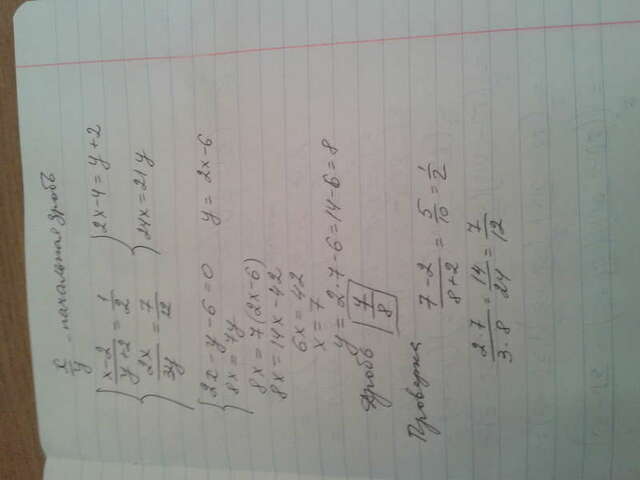 x/y - начальная дробь
{ x-2/y+2 = 1/2 { 2x-4=y+2
{ 2x/3y = 7/12 { 24x=21y
{ 2x-y-6=0 y = 2x-6
{ 8x=7y
8x = 7(2x-6)
8x = 14x-42
6x = 42
x = 7
y = 2·7-6=14-6=8
Дробь 7/8
Проверка 7-2/8+2 = 5/10 = 1/2
2·7/3·8 = 14/24 = 7/12